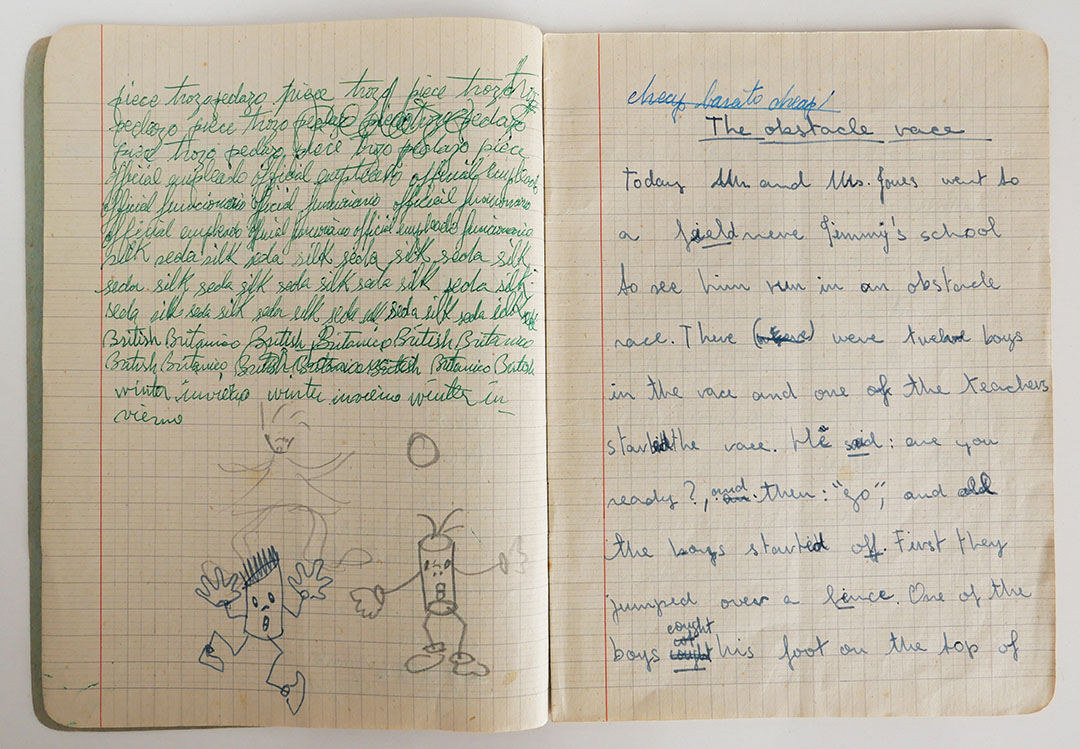 piece trozo pedazo piece trozo piece trozo
pedazo piece trozo pedazo piece trozo pedazo
piece trozo pedazo piece trozo pedazo piece
official empleado official empleado official empleado
official funcionario oficial funcionario official funcionario
official empleado official funcionario official empleado funcionario
silk seda silk seda silk seda silk seda silk
seda silk seda silk seda silk seda silk seda silk
seda silk seda silk seda silk seda silk seda silk seda silk
British Britanico British Britanico British Britanico
British Britanico British Britanico British Britanico British
winter invierno winter invierno winter in-
vierno
cheap barato cheap!
The obstacle race
Today Mr. and Mrs. Jones went to
a field neve Jimmy's school
to see him run in an obstacle
race. There were twelve boys
in the race and one of the teachers
started the race. He said: are you
ready?, and then: "go", and all
the boys started off. First they
jumped over a fence. One of the
boys cought his foot on the top of